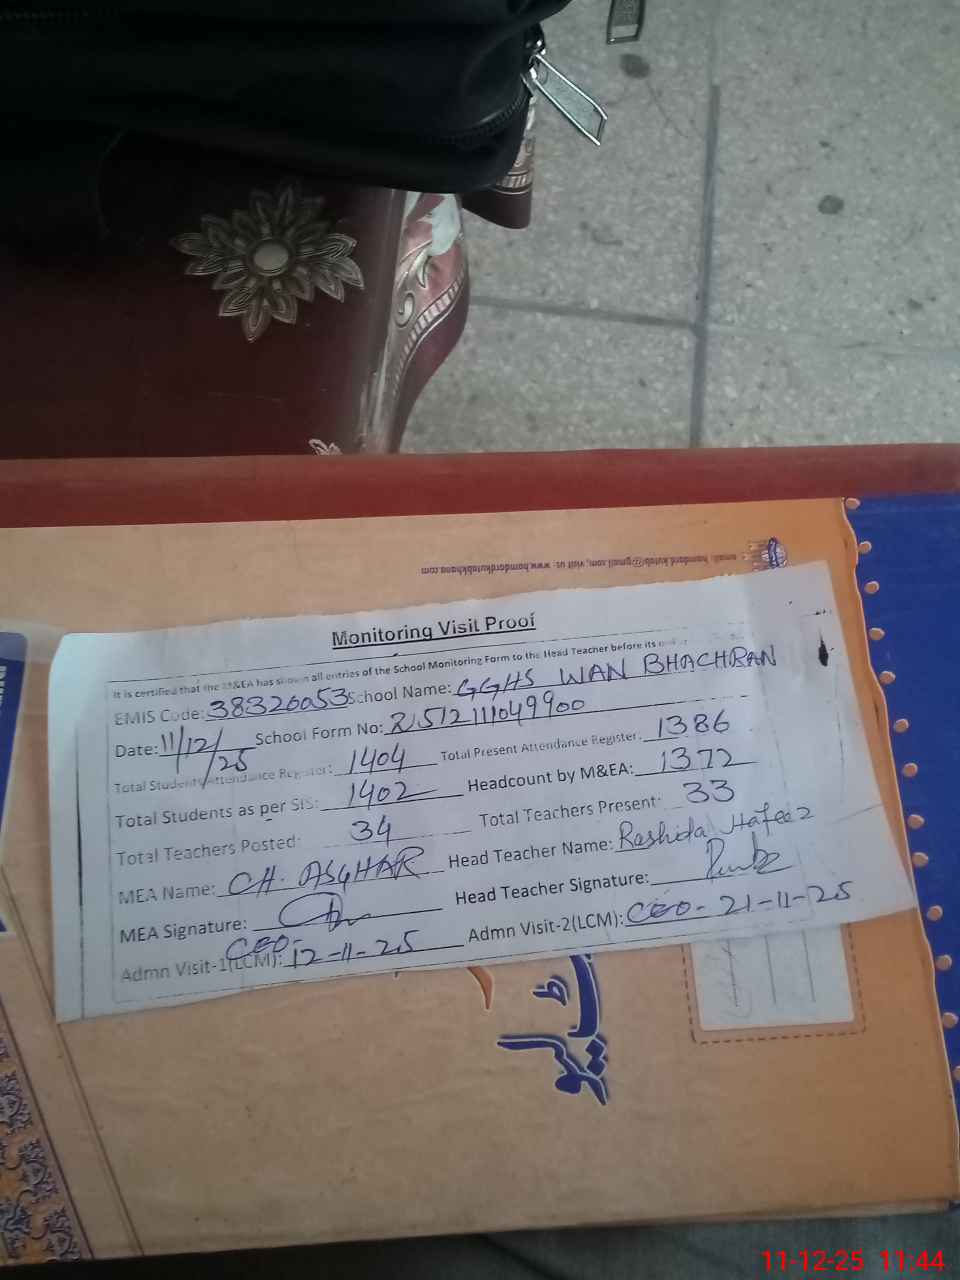 email: hamdard.kutab@gmail.com, visit us: www.hamdardkutabkhana.com
Monitoring Visit Proof
It is certified that the M&EA has shown all entries of the School Monitoring Form to the Head Teacher before its
EMIS Code: 38320053 School Name: GGHS WAN BHACHRAN
Date: 11/12/25 School Form No:
Total Students Attendance Register: 1404 Total Present Attendance Register: 1386
Total Students as per SIS: 1402 Headcount by M&EA: 1372
Total Teachers Posted: 34 Total Teachers Present: 33
MEA Name: CH. ASGHAR Head Teacher Name: Rashida Hafeez
MEA Signature: Head Teacher Signature:
Admn Visit-1(LCM): CEO- 12-11-25 Admn Visit-2(LCM): CEO- 21-11-25
11-12-25 11:44